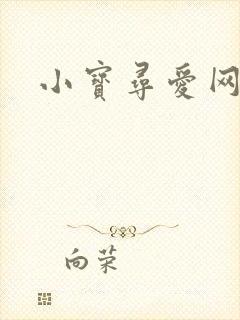 小寶尋愛网
向荣